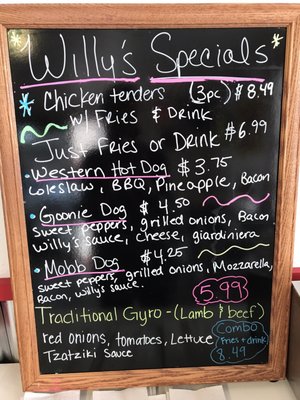 Willy's Specials
Chicken tenders (3pc) $8.49
w/ Fries & Drink
Just Fries or Drink $6.99
Western Hot Dog $3.75
Coleslaw, BBQ, Pineapple, Bacon
Goonie Dog $4.50
Sweet peppers, grilled onions, Bacon
Willy's sauce, cheese, giardiniera
Mobb Dog $4.25
Sweet peppers, grilled onions, Mozzarella,
Bacon, Willy's sauce.
5.99
Traditional Gyro - (Lamb & beef)
red onions, tomatoes, Lettuce
Tzatziki Sauce
Combo
Fries + drink
8.49